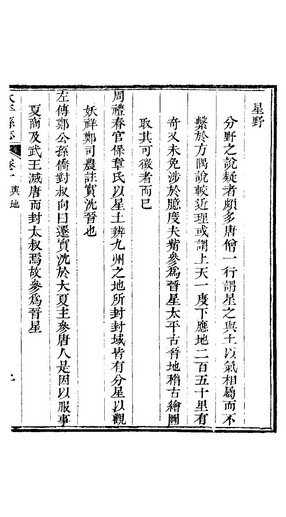 星野
分野之說疑者頗多唐僧一行謂星之與土以氣相屬而不
繫於方隅說較近理或謂上天一度下應地二百五十里有
奇又未免涉於臆度夫觜參為晉星太平古晉地稽古繪圖
取其可徵者而已
周禮春官保章氏以星土辨九州之地所封封域皆有分星以觀
妖祥鄭司農註實沈晉也
左傳鄭公孫僑對叔向曰遷實沈於大夏主參唐人是因以服事
夏商及武王滅唐而封太叔焉故參為晉星
太平縣志
卷一
輿地
九